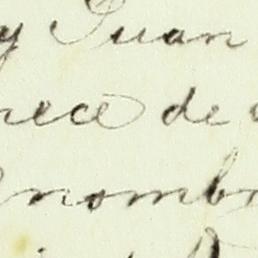 y Juan
rece de
nombr